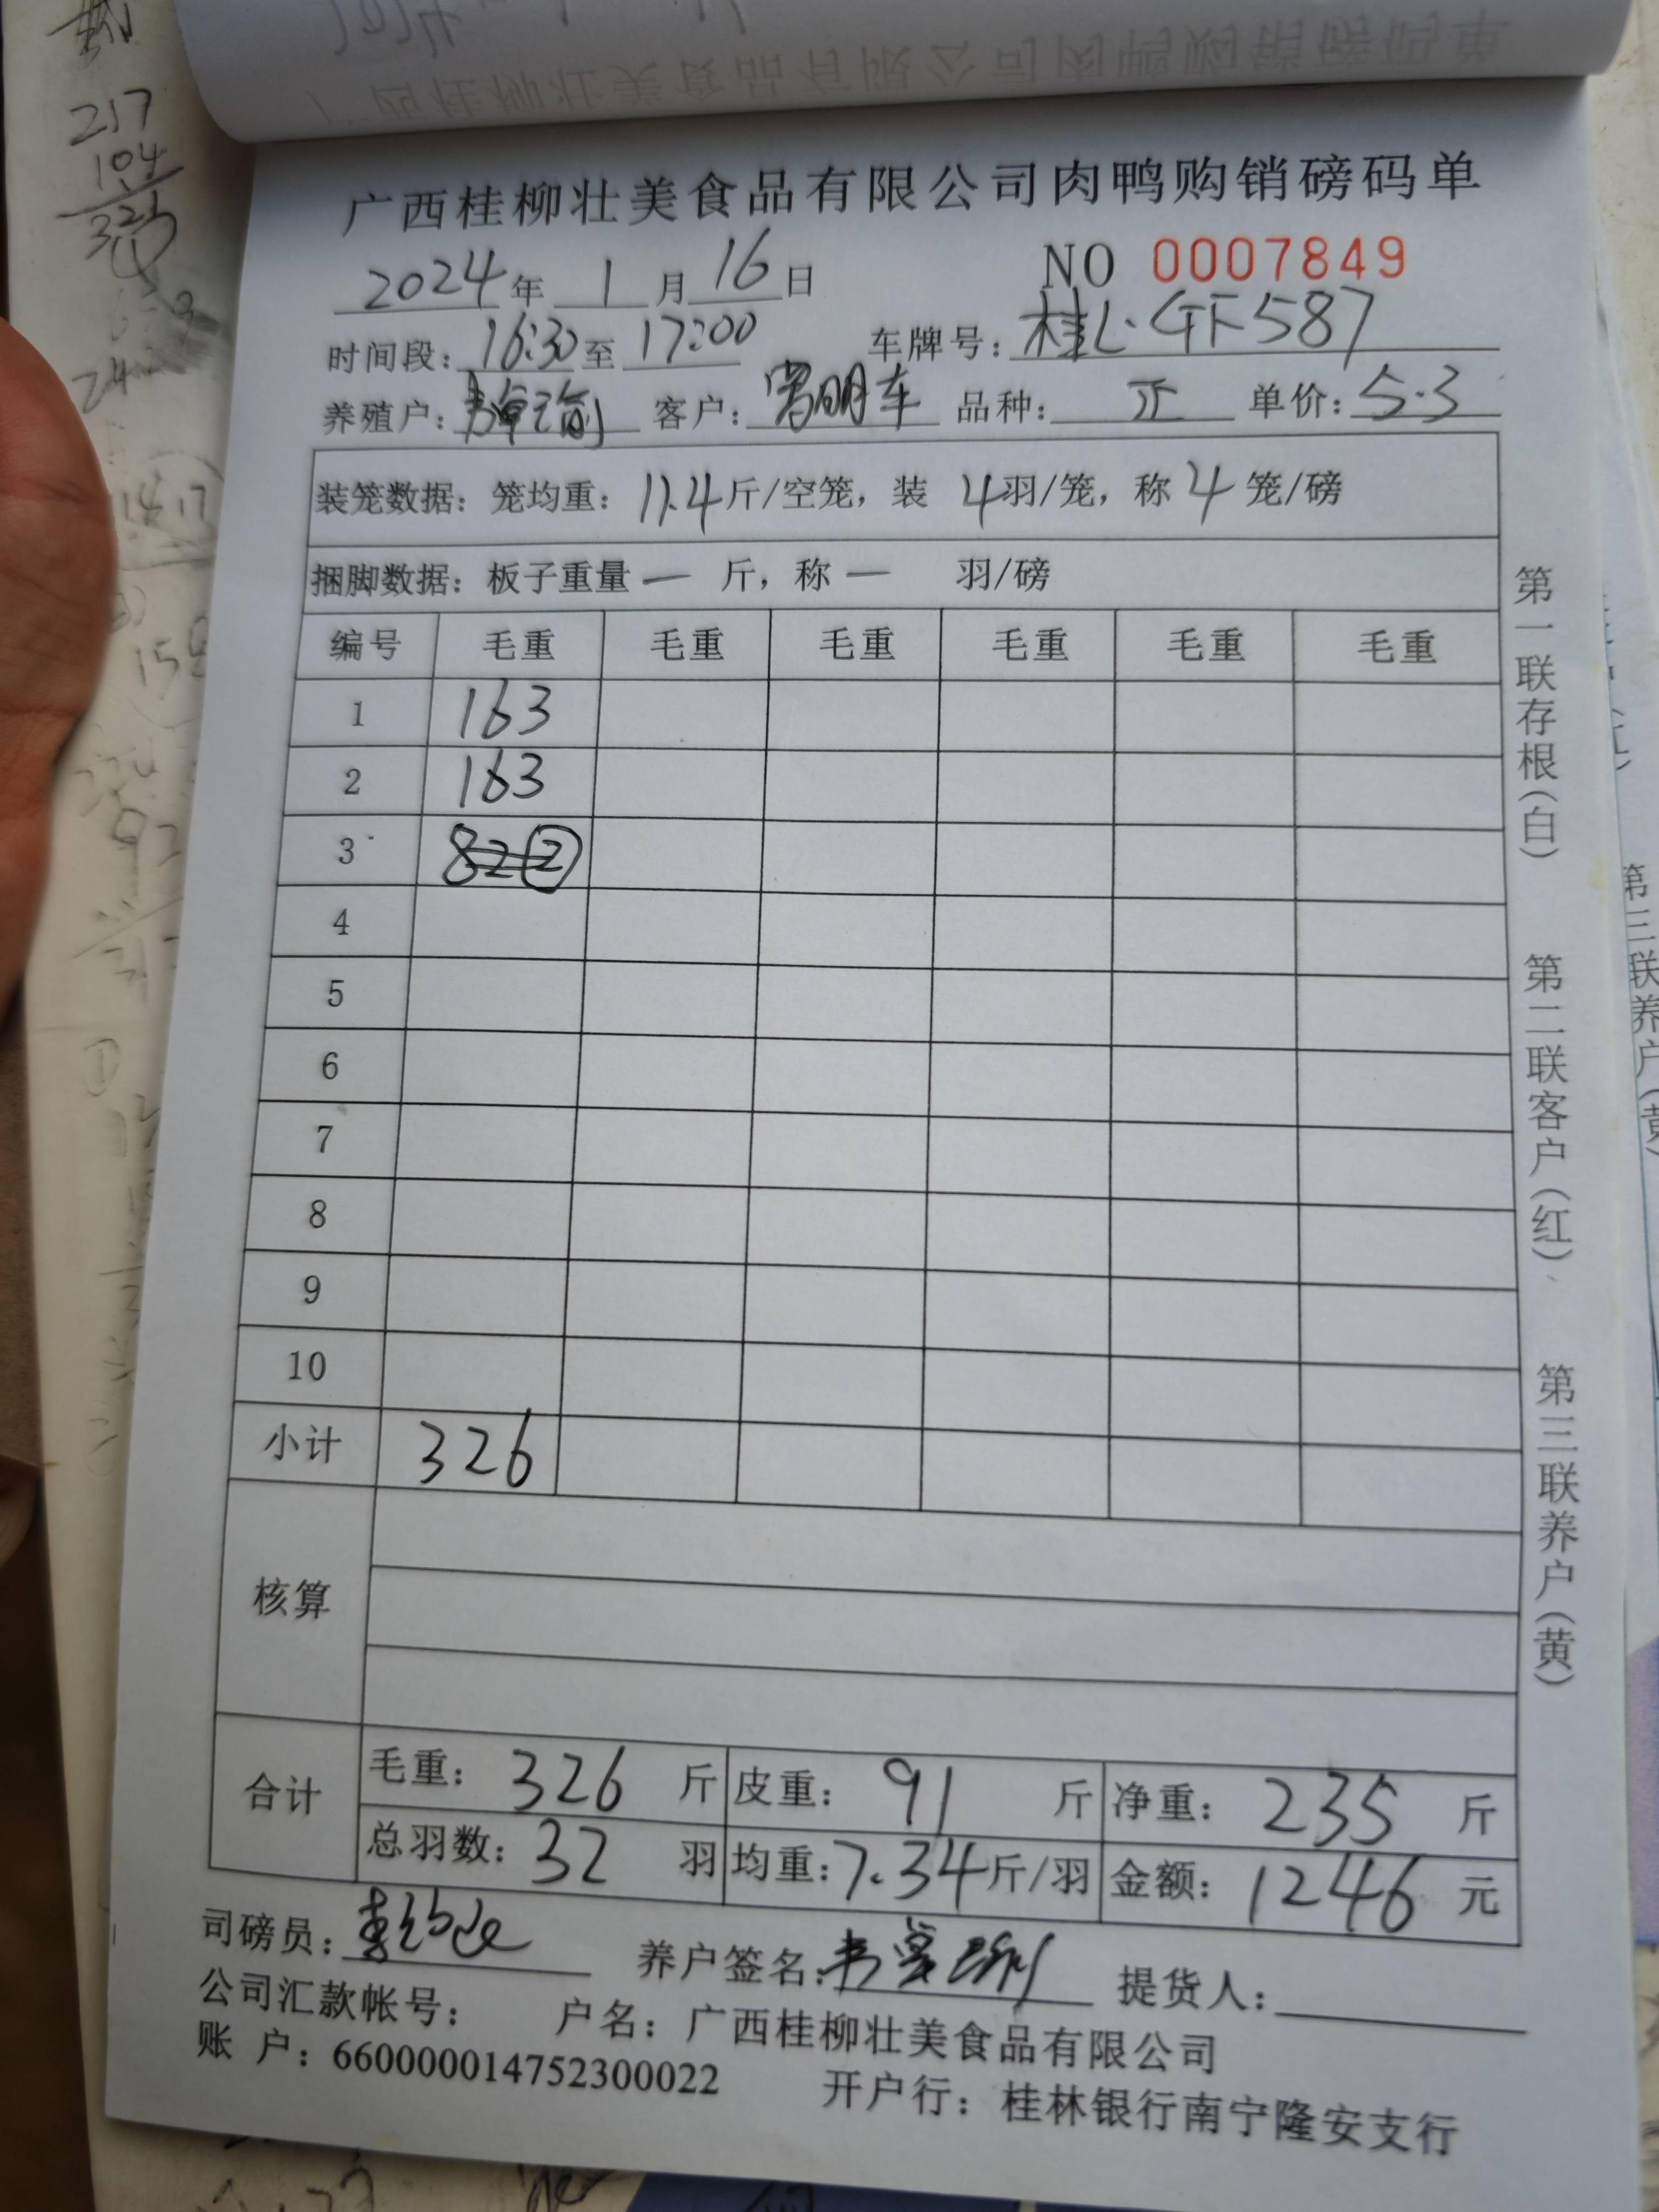 广西桂柳壮美食品有限公司肉鸭购销磅码单
2024年1月16日 NO 0007849
时间段：16:30至17:00 车牌号：桂L·GF587
养殖户： 客户：明车 品种：正 单价：5.3
装笼数据：笼均重：11.4斤/空笼，装4羽/笼，称4笼/磅
捆脚数据：板子重量 — 斤，称 — 羽/磅
编号 毛重 毛重 毛重 毛重 毛重 毛重
1 163
2 163
3 82②
4
5
6
7
8
9
10
小计 326
核算
合计 毛重：326斤 皮重：91斤 净重：235斤
总羽数：32羽 均重：7.34斤/羽 金额：1246元
司磅员： 养户签名： 提货人：
公司汇款帐号： 户名：广西桂柳壮美食品有限公司
账 户：660000014752300022 开户行：桂林银行南宁隆安支行
第一联存根（白）
第二联客户（红）
第三联养户（黄）
217
104
321
第三联养户（黄）